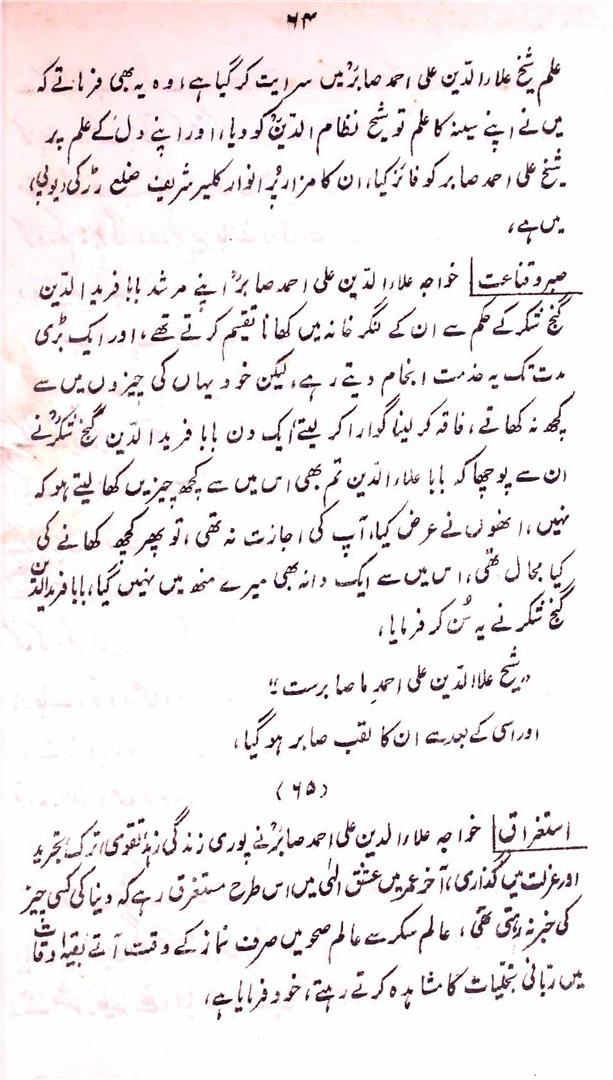 ۶۴
علم شیخ علاء الدین علی احمد صابرؒ میں سرایت کر گیا ہے، وہ یہ بھی فرماتے کہ
میں نے اپنے سینہ کا علم تو شیخ نظام الدینؒ کو دیا، اور اپنے دل کے علم پر
شیخ علی احمد صابر کو فائز کیا، ان کا مزار پُر انوار کلیر شریف ضلع رڑکی (یوپی)
میں ہے،
صبر و قناعت خواجہ علاء الدین علی احمد صابرؒ اپنے مرشد بابا فرید الدین
گنج شکر کے حکم سے ان کے لنگر خانہ میں کھانا تقسیم کرتے تھے، اور ایک بڑی
مدت تک یہ خدمت انجام دیتے رہے، لیکن خود یہاں کی چیزوں میں سے
کچھ نہ کھاتے، فاقہ کر لینا گوارا کر لیتے ایک دن بابا فرید الدین گنج شکرؒ نے
ان سے پوچھا کہ بابا علاء الدین تم بھی اس میں سے کچھ چیزیں کھا لیتے ہو کہ
نہیں، انھوں نے عرض کیا، آپ کی اجازت نہ تھی، تو پھر کچھ کھانے کی
کیا مجال تھی، اس میں سے ایک دانہ بھی میرے منھ میں نہیں گیا، بابا فرید الدین
گنج شکر نے یہ سُن کر فرمایا،
"شیخ علاالدین علی احمدِ ما صابرست"
اور اسی کے بعد سے ان کا لقب صابر ہو گیا،
(۶۵)
استغراق خواجہ علاء الدین علی احمد صابرؒ نے پوری زندگی زہد، تقوی، ترک، تجرید
اور عزلت میں گذاری، آخر عمر میں عشق الٰہی میں اس طرح مستغرق رہے کہ دنیا کی کسی چیز
کی خبر نہ رہتی تھی، عالم سکر سے عالم صحو میں صرف نماز کے وقت آتے بقیہ اوقات
میں ربّانی تجلیات کا مشاہدہ کرتے رہتے، خود فرمایا ہے،